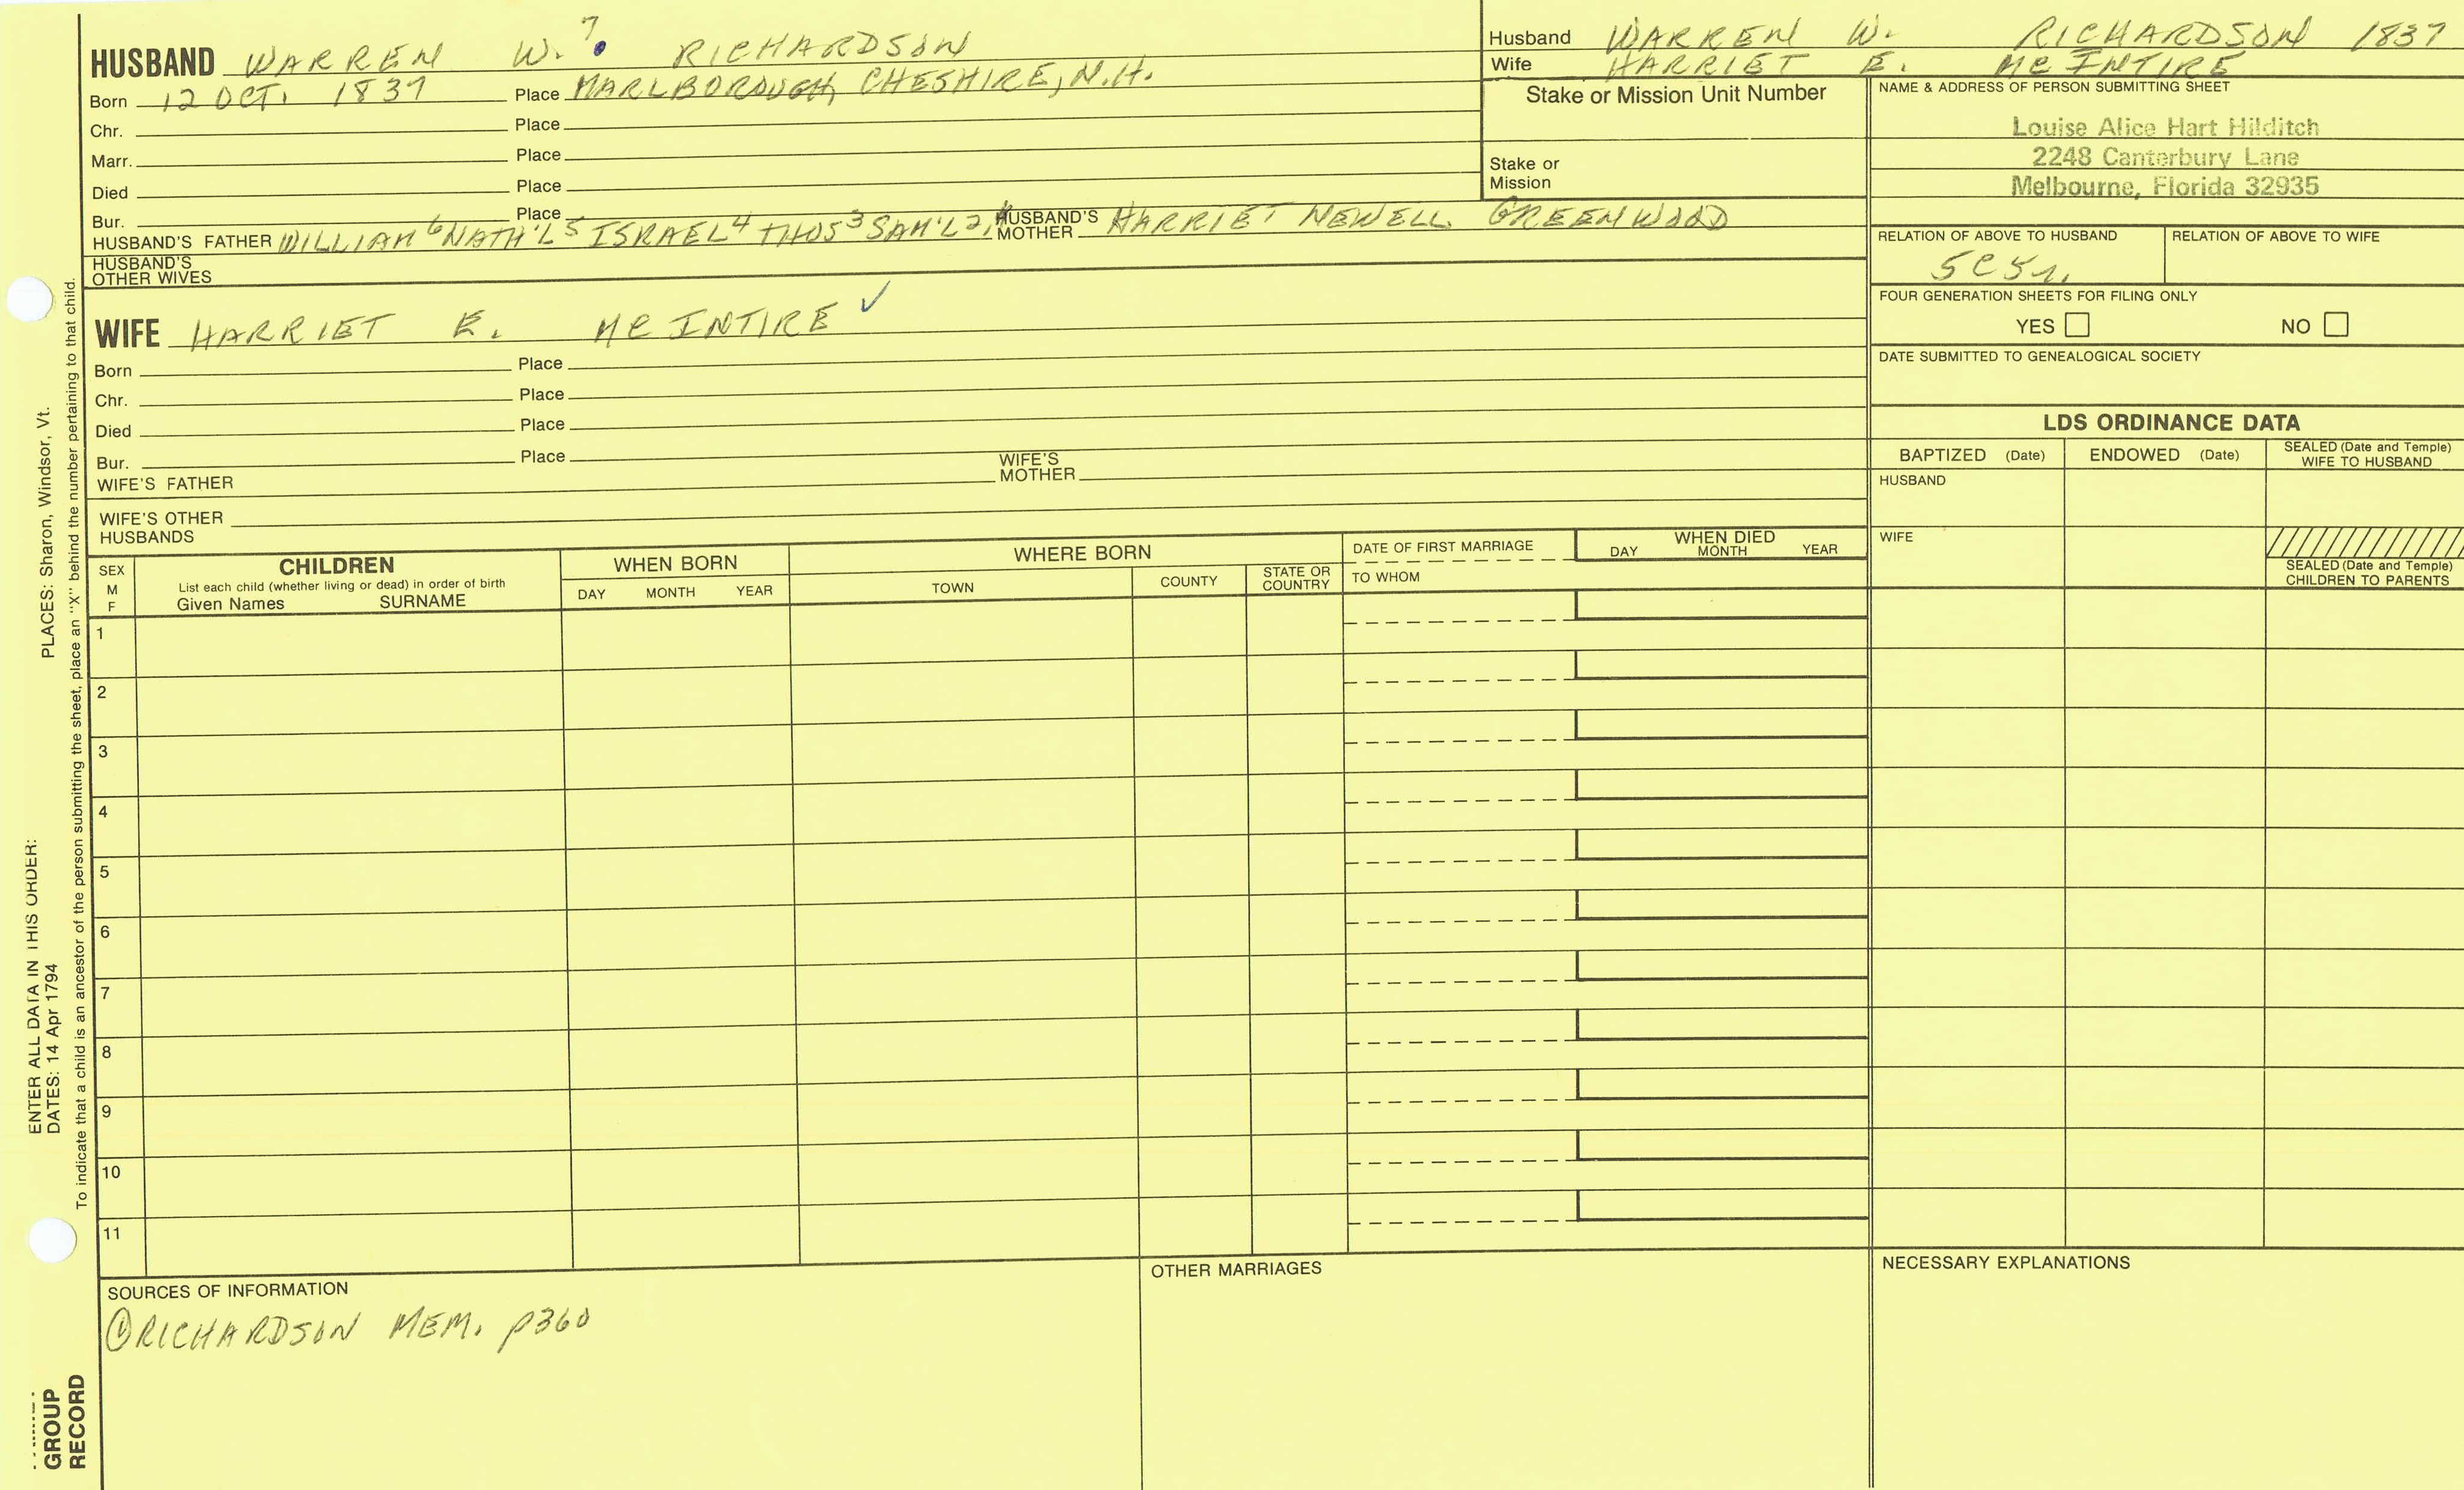 HUSBAND WARREN W.7 RICHARDSON
Born 12 OCT. 1837 Place MARLBOROUGH, CHESHIRE, N.H.
Chr. Place
Marr. Place
Died Place
Bur. Place
HUSBAND'S FATHER WILLIAM 6 NATH'L 5 ISRAEL 4 THOS 3 SAM'L 2, HUSBAND'S MOTHER HARRIET NEWELL GREENWOOD
HUSBAND'S OTHER WIVES
WIFE HARRIET E. McINTIRE ✓
Born Place
Chr. Place
Died Place
Bur. Place
WIFE'S FATHER WIFE'S MOTHER
WIFE'S OTHER HUSBANDS
Husband WARREN W. RICHARDSON 1837
Wife HARRIET E. McINTIRE
Stake or Mission Unit Number
Stake or Mission
NAME & ADDRESS OF PERSON SUBMITTING SHEET
Louise Alice Hart Hilditch
2248 Canterbury Lane
Melbourne, Florida 32935
RELATION OF ABOVE TO HUSBAND RELATION OF ABOVE TO WIFE
5C5r.
FOUR GENERATION SHEETS FOR FILING ONLY
YES NO
DATE SUBMITTED TO GENEALOGICAL SOCIETY
LDS ORDINANCE DATA
BAPTIZED (Date) ENDOWED (Date) SEALED (Date and Temple) WIFE TO HUSBAND
HUSBAND
WIFE
SEALED (Date and Temple) CHILDREN TO PARENTS
SEX M F
CHILDREN
List each child (whether living or dead) in order of birth
Given Names SURNAME
WHEN BORN
DAY MONTH YEAR
WHERE BORN
TOWN COUNTY STATE OR COUNTRY
DATE OF FIRST MARRIAGE
TO WHOM
WHEN DIED
DAY MONTH YEAR
1
2
3
4
5
6
7
8
9
10
11
SOURCES OF INFORMATION
① RICHARDSON MEM. p360
OTHER MARRIAGES
NECESSARY EXPLANATIONS
ENTER ALL DATA IN THIS ORDER:
DATES: 14 Apr 1794 PLACES: Sharon, Windsor, Vt.
To indicate that a child is an ancestor of the person submitting the sheet, place an "X" behind the number pertaining to that child.
GROUP
RECORD